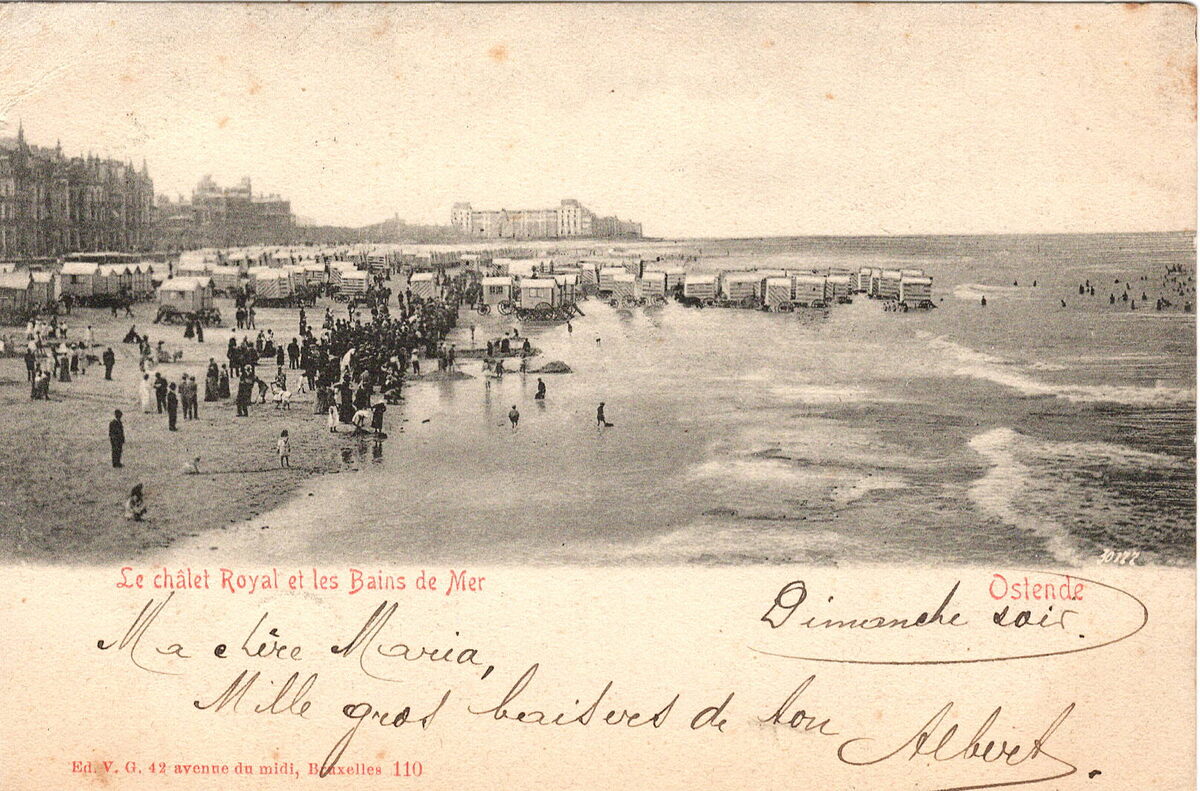 30177
Le châlet Royal et les Bains de Mer
Ostende
Dimanche soir.
Ma chère Maria,
Mille gros baisers de ton
Albert.
Ed. V. G. 42 avenue du midi, Bruxelles 110